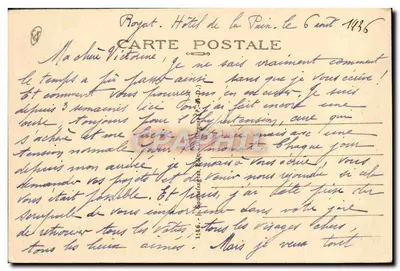 Royat. Hôtel de la Paix. le 6 août 1936
CARTE POSTALE
Ma chère Victorine, je ne sais vraiment comment
le temps a pu passer ainsi sans que je vous écrive!
Et comment vous pourrez m'en excuser. Je suis
depuis 3 semaines ici où j'ai fait encore une
cure, toujours pour l'hypertension, cure qui
s'achève et une mais avec une
tension normale Chaque jour
depuis mon arrivée, je pensais à vous écrire, vous
demander vos projets et de venir nous rejoindre si cela
vous était possible. Et puis, j'ai été prise du
scrupule de vous importuner dans votre joie
de retrouver tous les vôtres, tous les visages
tous les lieux aimés. Mais je veux tout